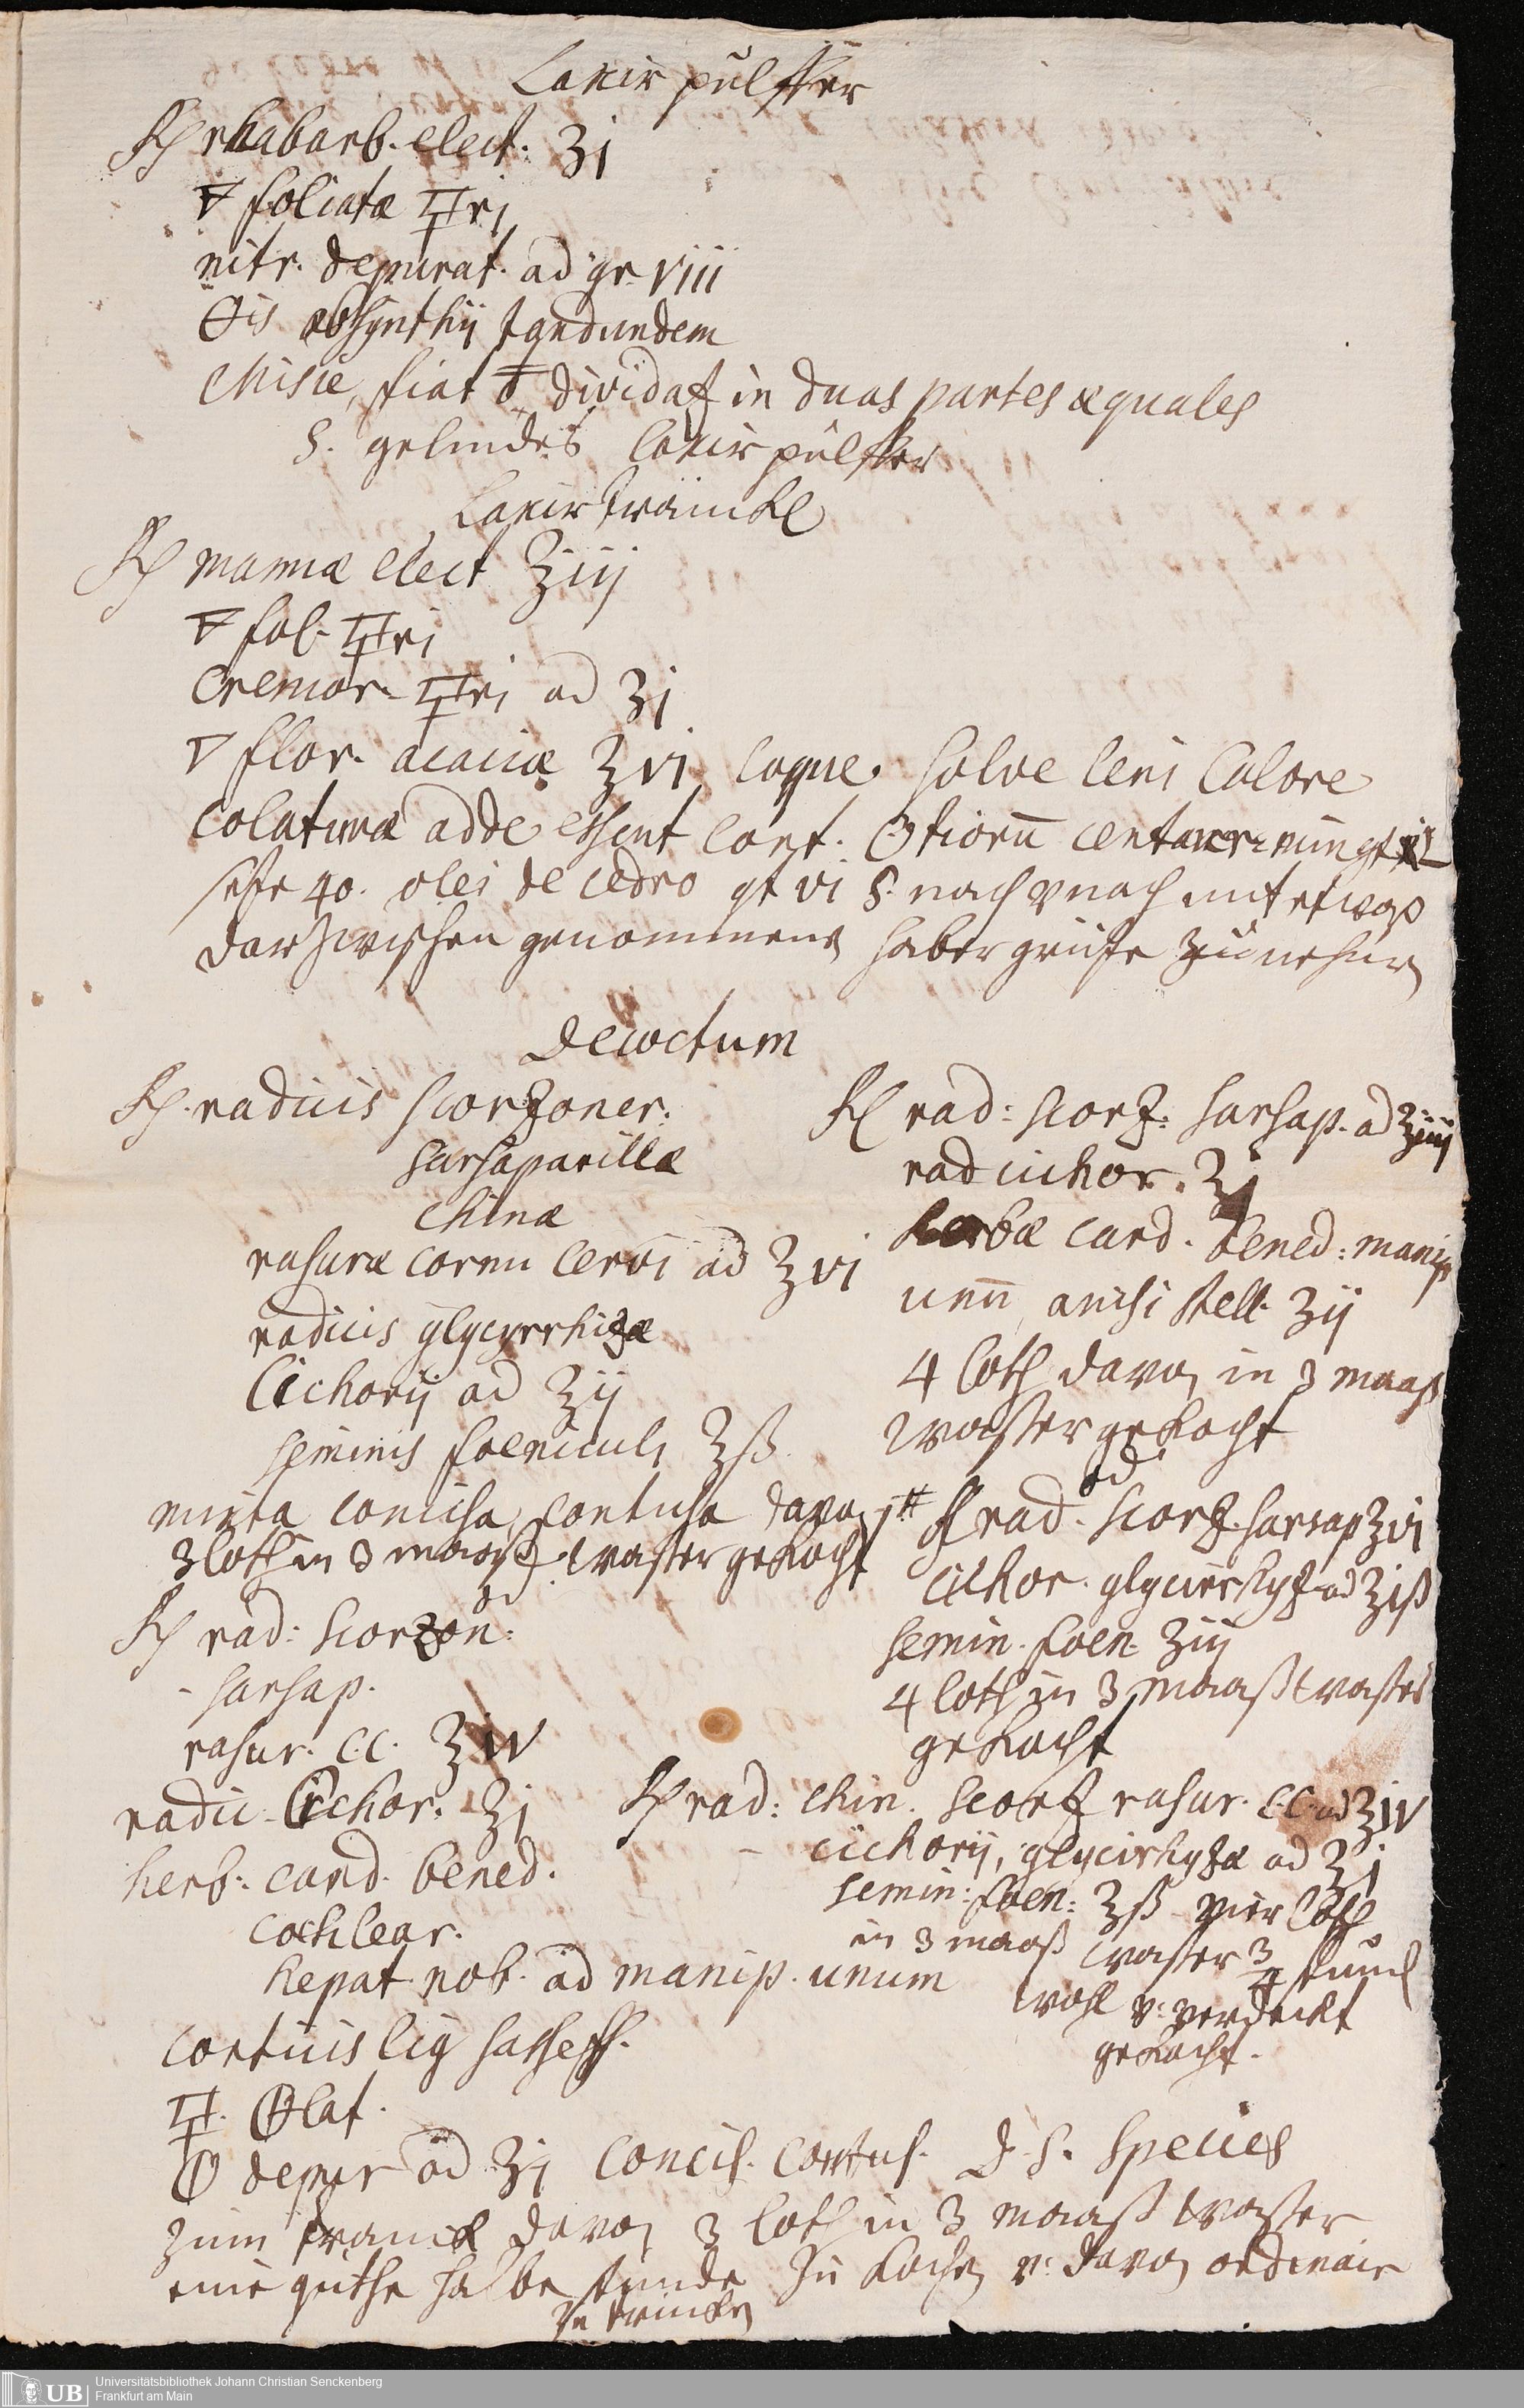 Laxir pulffer
℞ rhabarb. elect. ʒj
🜃 foliatæ 🜿ri
nitr. depurat. ad gr. viii
🜔is absynthij tandundem
Misce, fiat dividat in duas partes æquales
S. gelindes laxir pulffer
Laxir tränckl
℞ mannæ elect ℥iij
🜃 fol. 🜿ri
Cremor. 🜿ri ad ʒj
flor. acaciæ ℥vi coque. solve leni calore
colaturæ adde essent cort. centaur. min gt
olei de cedro gt vi S. nach v nach mit etwaß
darzwischen genommene haber grütze zu nehmen
Decoctum
℞. radicis scorzoner.
sarsaparillæ
chinæ
rasuræ cornu cervi ad ℥vi
radicis glycyrrhizæ
Cichorij ad ℥ij
seminis foeniculi ℥ß
mixta concisa, contusa davon
3 loth in 3 maaß wasser gekocht
od
℞ rad: scorzon:
- sarsap.
rasur. C.C. ℥iv
radic. Cichor. ℥j
herb: card. bened.
cochlear.
hepat. nob. ad manip. unum
corticis lig sassefr.
🜿. 🜔lat.
🜕 depur ad ʒij concis. contus. D. S. Species
zum tranck davon 3 loth in 3 maaß wasser
eine guthe halbe stunde zu kochen v: davon ordinair
zu trincken
℞ rad: scorz: sarsap. ad ℥iiij
rad cichor. ℥j
herbæ card. bened: manip
unū anisi stell. ʒij
4 loth davon in 3 maaß
wasser gekocht
od
℞ rad. scorz. sarsap ℥vi
cichor. glycirrhyz ad ℥iß
semin. foen. ʒiij
4 loth in 3 maaß wasser
gekocht
℞ rad: chin. scorz rasur. C.C. ad ℥iv
- cichorij, glycirhyzæ ad ℥j
semin: foen: ℥ß vier loth
in 3 maaß wasser 3/4 stund
wohl v: verdeckt
gekocht.
UB Universitätsbibliothek Johann Christian Senckenberg
Frankfurt am Main